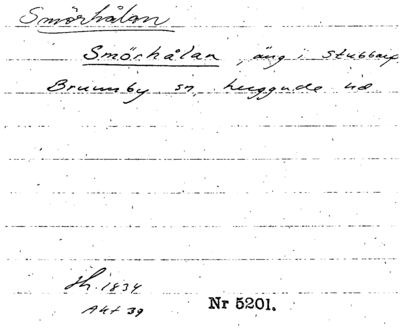 Smörhålan
Smörhålan, äng i Stubbarp
Brunnby sn, huggude
Sh. 1834
Akt 39
Nr 5201.